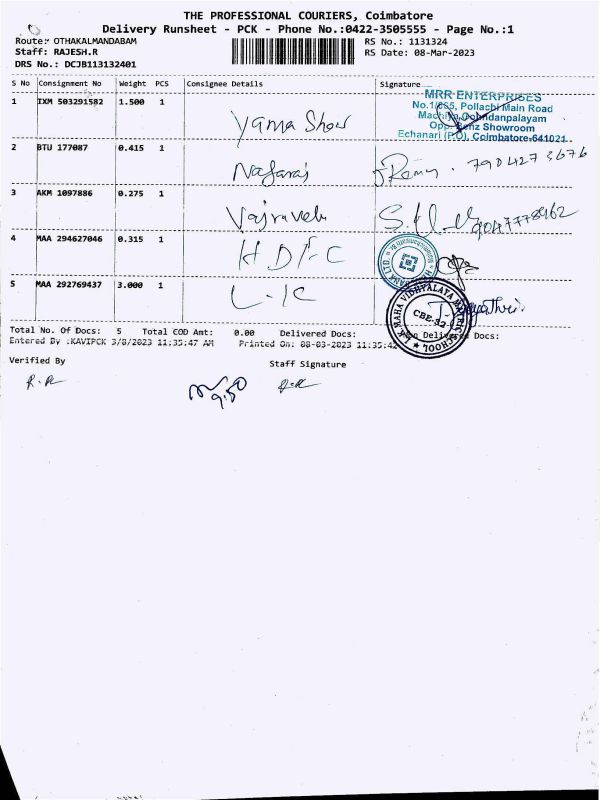 THE PROFESSIONAL COURIERS, Coimbatore
Delivery Runsheet - PCK - Phone No.:0422-3505555 - Page No.:1
Route:- OTHAKALMANDABAM
RS No.: 1131324
Staff: RAJESH.R
RS Date: 08-Mar-2023
DRS No.: DCJB113132401
S No Consignment No Weight PCS Consignee Details Signature
1 IXM 503291582 1.500 1 Yama Show
MRR ENTERPRISES
No.1/685, Pollachi Main Road
Opp. Benz Showroom
Echanari (P.O), Coimbatore-641021
2 BTU 177087 0.415 1 Nagaraj 7904273676
3 AKM 1097886 0.275 1 Vajravelu 9047778962
4 MAA 294627046 0.315 1 HDFC
5 MAA 292769437 3.000 1 L.K
MAHA VIDHYALAYA SCHOOL
CBE-32
Total No. Of Docs: 5 Total COD Amt: 0.00 Delivered Docs: Non Delivered Docs:
Entered By :KAVIPCK 3/8/2023 11:35:47 AM Printed On: 08-03-2023 11:35:42
Verified By
Staff Signature
R.R
9.50